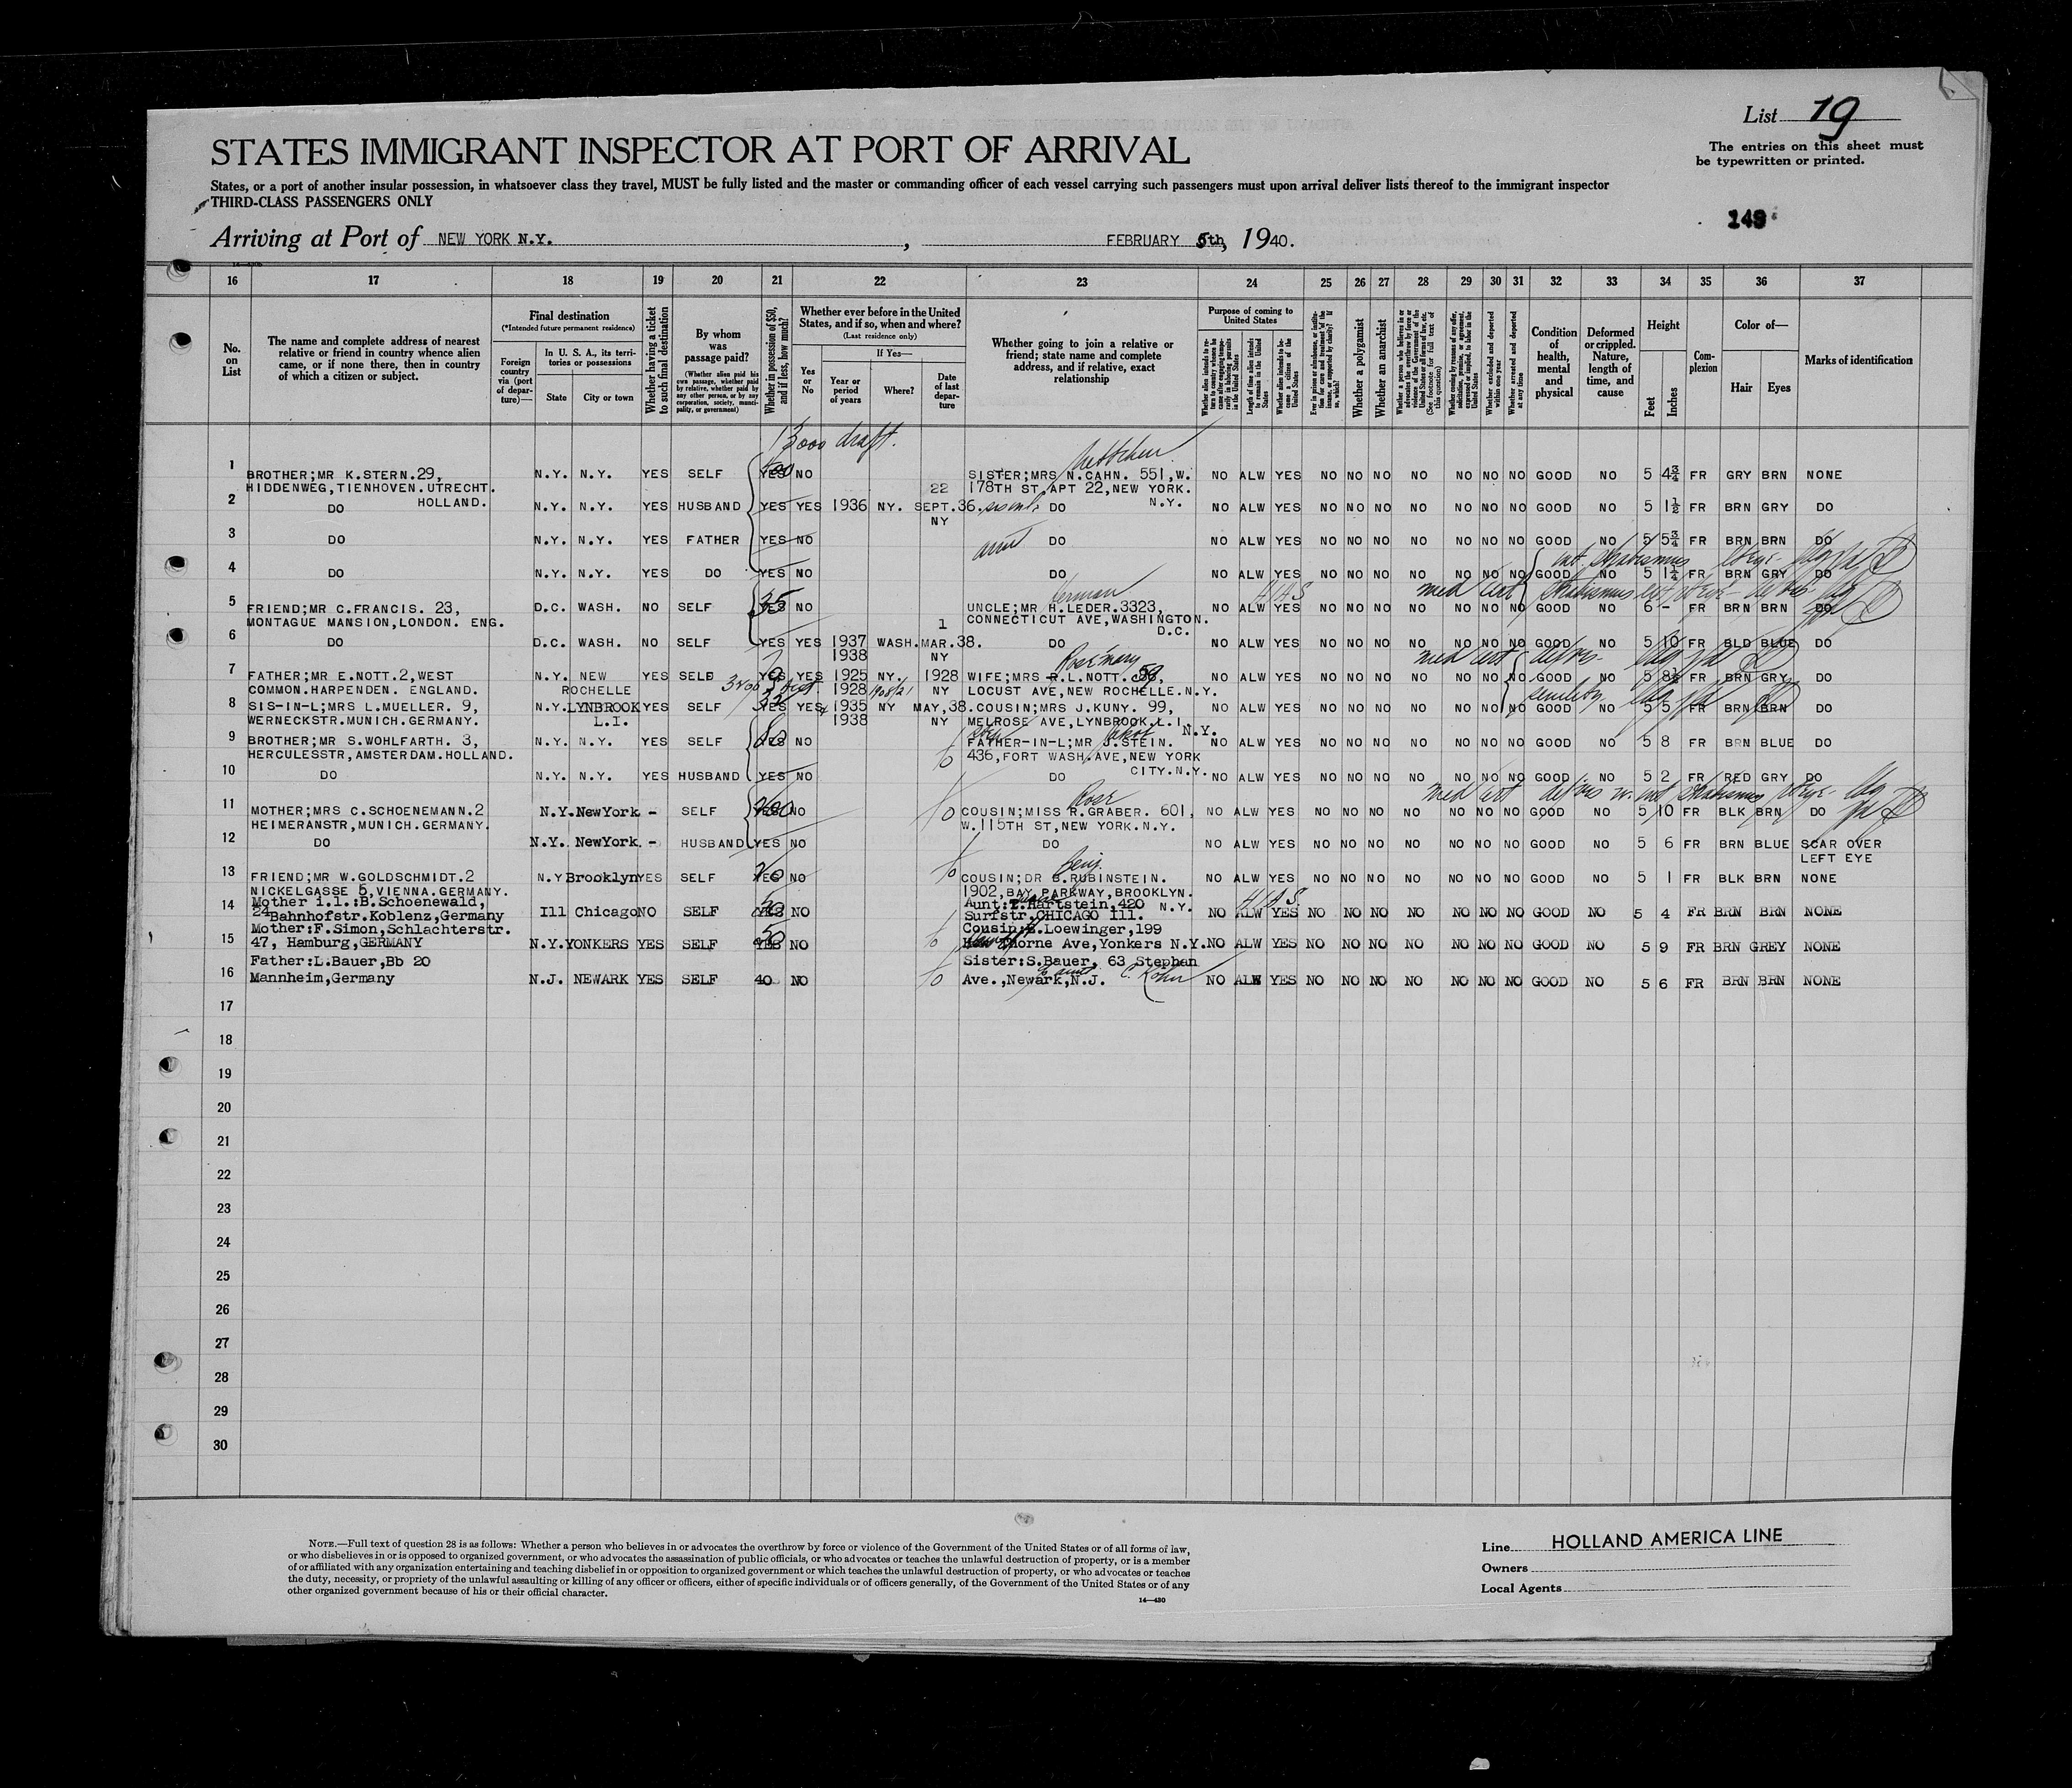 List 19
The entries on this sheet must
be typewritten or printed.
STATES IMMIGRANT INSPECTOR AT PORT OF ARRIVAL
States, or a port of another insular possession, in whatsoever class they travel, MUST be fully listed and the master or commanding officer of each vessel carrying such passengers must upon arrival deliver lists thereof to the immigrant inspector
THIRD-CLASS PASSENGERS ONLY
149
Arriving at Port of NEW YORK N.Y., FEBRUARY 5th, 1940.
16 17 18 19 20 21 22 23 24 25 26 27 28 29 30 31 32 33 34 35 36 37
No. on List
The name and complete address of nearest relative or friend in country whence alien came, or if none there, then in country of which a citizen or subject.
Final destination
(*Intended future permanent residence)
Foreign country via (port of departure)—
In U. S. A., its territories or possessions
State City or town
Whether having a ticket to such final destination
By whom was passage paid?
(Whether alien paid his own passage, whether paid by relative, whether paid by any other person, or by any corporation, society, municipality, or government)
Whether in possession of $50, and if less, how much?
Whether ever before in the United States, and if so, when and where?
(Last residence only)
Yes or No
If Yes—
Year or period of years
Where?
Date of last departure
Whether going to join a relative or friend; state name and complete address, and if relative, exact relationship
Purpose of coming to United States
Whether a polygamist
Whether an anarchist
Whether excluded and deported within one year
Whether arrested and deported at any time
Condition of health, mental and physical
Deformed or crippled. Nature, length of time, and cause
Height
Feet Inches
Complexion
Color of—
Hair Eyes
Marks of identification
13000 draft.
1 BROTHER;MR K.STERN.29, N.Y. N.Y. YES SELF YES NO SISTER;MRS N.CAHN. 551,W. NO ALW YES NO NO NO NO NO NO NO GOOD NO 5 4¾ FR GRY BRN NONE
HIDDENWEG,TIENHOVEN.UTRECHT. 22 178TH ST.APT 22,NEW YORK.
HOLLAND. N.Y.
2 DO N.Y. N.Y. YES HUSBAND YES YES 1936 NY. SEPT.36. DO NO ALW YES NO NO NO NO NO NO NO GOOD NO 5 1½ FR BRN GRY DO
NY
3 DO N.Y. N.Y. YES FATHER YES NO aunt DO NO ALW YES NO NO NO NO NO NO NO GOOD NO 5 5¾ FR BRN BRN DO
4 DO N.Y. N.Y. YES DO YES NO DO NO ALW YES NO NO NO NO NO NO NO GOOD NO 5 1¼ FR BRN GRY DO
Herman HIAS med cert
5 FRIEND;MR C.FRANCIS. 23, D.C. WASH. NO SELF YES 35 NO UNCLE;MR H.LEDER.3323, NO ALW YES NO NO NO NO NO NO NO GOOD NO 6 - FR BRN BRN DO
MONTAGUE MANSION,LONDON. ENG. 1 CONNECTICUT AVE,WASHINGTON.
D.C.
6 DO D.C. WASH. NO SELF YES YES 1937 WASH.MAR.38. DO NO ALW YES NO NO NO NO NO NO NO GOOD NO 5 10 FR BLD BLUE DO
1938 NY
Rosemary med cert
7 FATHER;MR E.NOTT.2,WEST N.Y. NEW YES SELF YES YES 1925 NY. 1928 WIFE;MRS R.L.NOTT. 59, NO ALW YES NO NO NO NO NO NO NO GOOD NO 5 8½ FR BRN GRY DO
COMMON.HARPENDEN. ENGLAND. ROCHELLE 1928 NY LOCUST AVE,NEW ROCHELLE.N.Y.
senility
8 SIS-IN-L;MRS L.MUELLER. 9, N.Y.LYNBROOK YES SELF YES YES 1935 NY MAY,38.COUSIN;MRS J.KUNY. 99, NO ALW YES NO NO NO NO NO NO NO GOOD NO 5 5 FR BRN BRN DO
WERNECKSTR.MUNICH.GERMANY. L.I. 1938 NY MELROSE AVE,LYNBROOK.L.I.
N.Y.
9 BROTHER;MR S.WOHLFARTH. 3, N.Y. N.Y. YES SELF YES NO FATHER-IN-L;MR J.STEIN. NO ALW YES NO NO NO NO NO NO NO GOOD NO 5 8 FR BRN BLUE DO
HERCULESSTR,AMSTERDAM.HOLLAND. 436,FORT WASH.AVE,NEW YORK
CITY.N.Y.
10 DO N.Y. N.Y. YES HUSBAND YES NO DO NO ALW YES NO NO NO NO NO NO NO GOOD NO 5 2 FR RED GRY DO
Rose med cert
11 MOTHER;MRS C.SCHOENEMANN.2 N.Y.NewYork - SELF YES NO COUSIN;MISS R.GRABER. 601, NO ALW YES NO NO NO NO NO NO NO GOOD NO 5 10 FR BLK BRN DO
HEIMERANSTR,MUNICH.GERMANY. W.115TH ST,NEW YORK.N.Y.
12 DO N.Y. NewYork. - HUSBAND YES NO DO NO ALW YES NO NO NO NO NO NO NO GOOD NO 5 6 FR BRN BLUE SCAR OVER
LEFT EYE
Benj
13 FRIEND;MR W.GOLDSCHMIDT.2 N.Y Brooklyn YES SELF YES NO COUSIN;DR B.RUBINSTEIN. NO ALW YES NO NO NO NO NO NO NO GOOD NO 5 1 FR BLK BRN NONE
NICKELGASSE 5,VIENNA.GERMANY. 1902,BAY PARKWAY,BROOKLYN.
N.Y. HIAS
Mother i.l.:B.Schoenewald, Aunt: Hartstein,420
14 24 Bahnhofstr.Koblenz,Germany Ill Chicago NO SELF YES 50 NO Surfstr,CHICAGO Ill. NO ALW YES NO NO NO NO NO NO NO GOOD NO 5 4 FR BRN BRN NONE
Mother:F.Simon,Schlachterstr. Cousin:S.Loewinger,199
15 47, Hamburg,GERMANY N.Y.YONKERS YES SELF YES 50 NO Hawthorne Ave,Yonkers N.Y. NO ALW YES NO NO NO NO NO NO NO GOOD NO 5 9 FR BRN GREY NONE
Father:L.Bauer,Bb 20 Sister:S.Bauer, 63 Stephan
16 Mannheim,Germany N.J. NEWARK YES SELF 40 NO Ave.,Newark,N.J. NO ALW YES NO NO NO NO NO NO NO GOOD NO 5 6 FR BRN BRN NONE
17
18
19
20
21
22
23
24
25
26
27
28
29
30
NOTE.—Full text of question 28 is as follows: Whether a person who believes in or advocates the overthrow by force or violence of the Government of the United States or of all forms of law,
or who disbelieves in or is opposed to organized government, or who advocates the assassination of public officials, or who advocates or teaches the unlawful destruction of property, or is a member
of or affiliated with any organization entertaining and teaching disbelief in or opposition to organized government or which teaches the unlawful destruction of property, or who advocates or teaches
the duty, necessity, or propriety of the unlawful assaulting or killing of any officer or officers, either of specific individuals or of officers generally, of the Government of the United States or of any
other organized government because of his or their official character.
14—430
Line HOLLAND AMERICA LINE
Owners
Local Agents